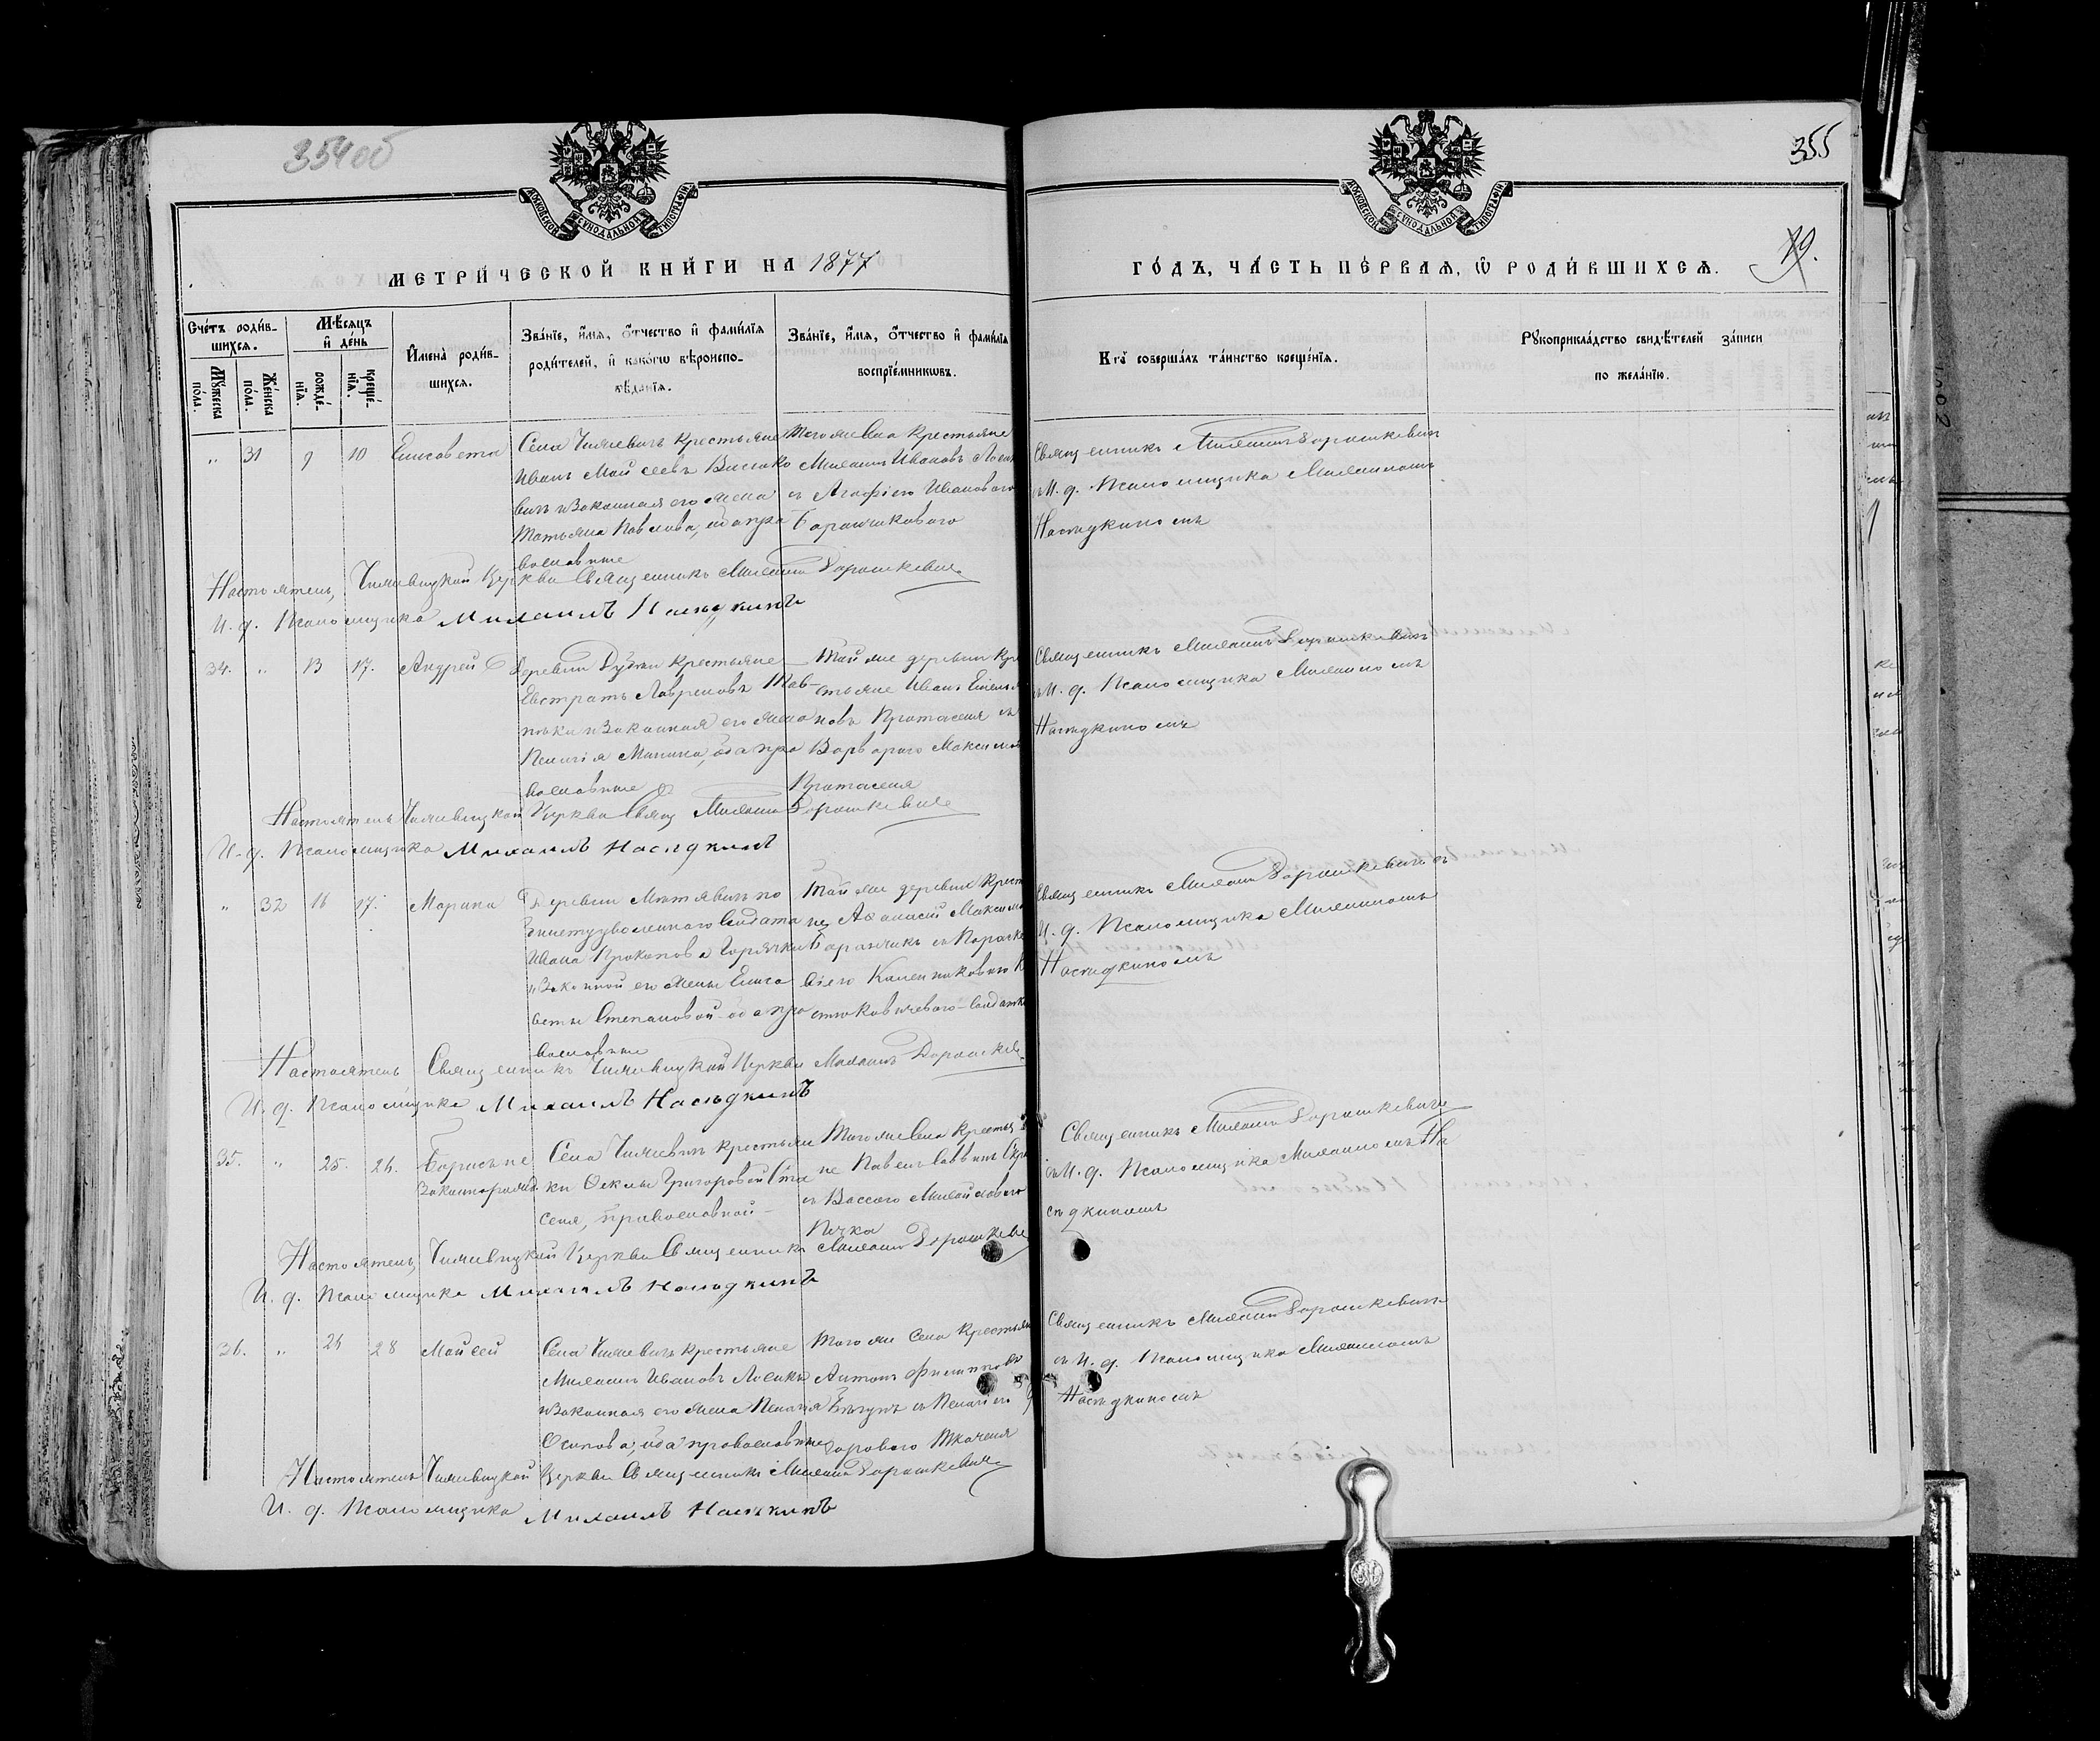 354об
355
МОСКОВСКОЙ СѴНОДАЛЬНОЙ ТИПОГРАФІИ
МОСКОВСКОЙ СѴНОДАЛЬНОЙ ТИПОГРАФІИ
19.
МЕТРИ́ЧЕСКОЙ КНИ́ГИ НА 1877
ГО́ДЪ, ЧА́СТЬ ПЕ́РВАѦ, Ѿ РОДИ́ВШИХСѦ.
Сче́тъ роди́в-
шихсѧ.
Мꙋ́жеска по́ла.
Же́нска по́ла.
Мѣ́сѧцъ и҆ де́нь
рожде́-
нїѧ.
креще́-
нїѧ.
И҆мена̀ роди́в-
шихсѧ.
Зва́нїе, и҆́мѧ, ѻ҆́тчество и҆ фами́лїѧ
роди́телей, и҆ како́гѡ вѣроиспо-
вѣ́данїѧ.
Зва́нїе, и҆́мѧ, ѻ҆́тчество и҆ фами́лїѧ
воспрїе́мникѡвъ.
Кто̀ соверша́лъ та́инство креще́нїѧ.
Рꙋкоприкла́дство свидѣ́телей за́писи
по жела́нїю.
„ 31 9 10 Елисавета
Села Чижевичъ крестьяне
Иванъ Мойсеевъ Высоко
вичъ и законная его жена
Татьяна Павлова, оба пра
вославные
Того же села крестьяне
Михаилъ Ивановъ
съ Агафіею Ивановою
Баранчиковою
Священникъ Михаилъ Дорошкевичъ
съ И. д. Псаломщика Михаиломъ
Наследкиномъ
Настоятель, Чижевицкой Церкви Священникъ Михаилъ Дорошкевичъ
И. д. Псаломщика Михаилъ Наследкинъ
34. „ 13 17. Андрей
Деревни Дубеи крестьяне
Евстратъ Лавреновъ
и законная его жена
Пелагія Минина, оба пра
вославные
Той же деревни кре
стьяне Иванъ Емелья
новъ Протасеня съ
Варварою Максимо
Протасеня
Священникъ Михаилъ Дорошкевичъ
съ И. д. Псаломщика Михаиломъ
Наследкиномъ
Настоятель Чижевицкой Церкви Свящ Михаилъ Дорошкевичъ
И. д. Псаломщика Михаилъ Наследкинъ
„ 32 16 17. Марина
Деревни Метявичъ по
солдата
Ивана Прокопова
и законной его жены Елиса
веты Степановой оба пра
вославные
Той же деревни крест
не Афанасій Максимо
Баранчикъ съ Параске
віею
солдатка
Священникъ Михаилъ Дорошкевичъ съ
И. д. Псаломщика Михаиломъ
Наследкиномъ
Настоятель Священникъ Чижевицкой Церкви Михаилъ Дорошкев
И. д. Псаломщика Михаилъ Наследкинъ
35. „ 25. 26. Борисъ не
законнорожд
Села Чижевичъ крестьян
ки Феклы Григоровой Ста
сеня, православной
Того же села крестья
не Павелъ Саввинъ
съ Вассою Михайловою
Пѣчка
Священникъ Михаилъ Дорошкевичъ
съ И. д. Псаломщика Михаиломъ На
следкиномъ
Настоятель, Чижевицкой Церкви Священникъ Михаилъ Дорошкеви
И. д. Псаломщика Михаилъ Наследкинъ
36. „ 26 28 Мойсей
Села Чижевичъ крестьяне
Михаилъ Ивановъ
и законная его жена Пелагія
Осипова, оба православные
Того же села крестьян
Антонъ Филипповъ
Бѣгунъ съ Пелагіею
доровою Ткаченя
Священникъ Михаилъ Дорошкевичъ
съ И. д. Псаломщика Михаиломъ
Наследкиномъ
Настоятель Чижевицкой Церкви Священникъ Михаилъ Дорошкевичъ
И. д. Псаломщика Михаилъ Наследкинъ